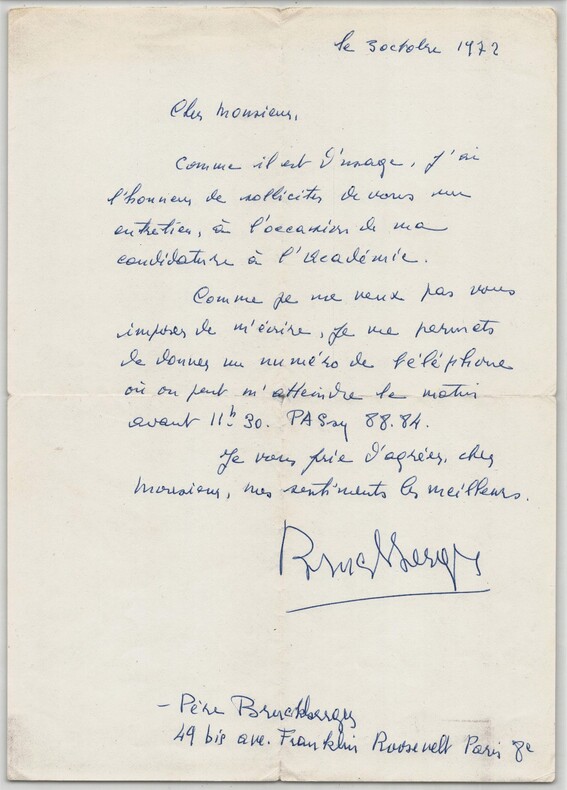 le 3 octobre 1972
Cher Monsieur,
Comme il est d'usage, j'ai
l'honneur de solliciter de vous un
entretien, à l'occasion de ma
candidature à l'Académie.
Comme je ne veux pas vous
imposer de m'écrire, je me permets
de donner un numéro de téléphone
où on peut m'atteindre le matin
avant 11h 30. PASsy 88.84.
Je vous prie d'agréer, cher
Monsieur, mes sentiments les meilleurs.
Bruckberger
- Père Bruckberger
49 bis ave. Franklin Roosevelt Paris 8e